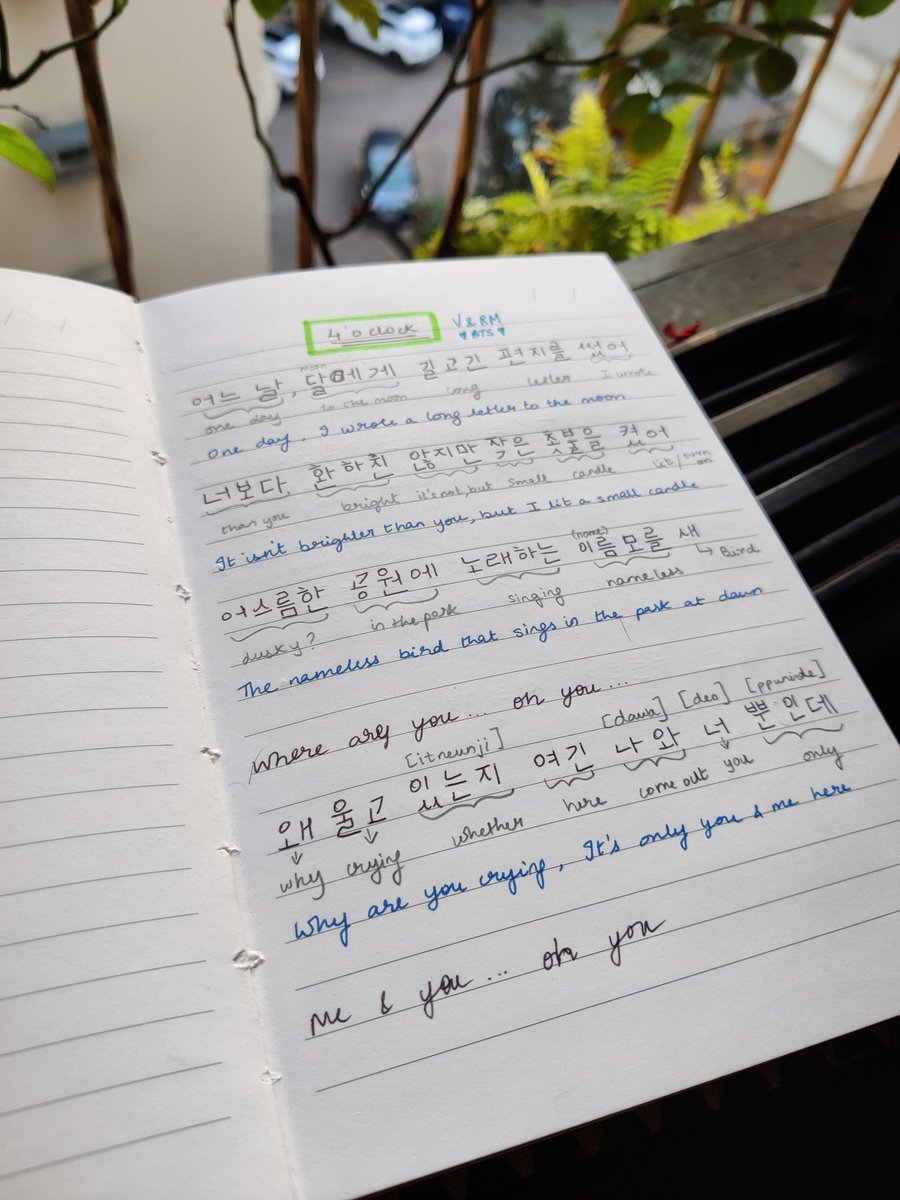 4'o clock
V & RM
♥ BTS ♥
moon
어느 날, 달에게 길고긴 편지를 썼어
one day to the moon long letter I wrote
One day, I wrote a long letter to the moon
너보다, 환하진 않지만 작은 촛불을 켰어
than you bright it's not, but small candle lit/turn on
It isn't brighter than you, but I lit a small candle
(name)
어스름한 공원에 노래하는 이름모를 새
dusky? in the park singing nameless → Bird
The nameless bird that sings in the park at dawn
Where are you... oh you...
[itneunji] [dawa] [deo] [ppuninde]
왜 울고 있는지 여긴 나와 너 뿐인데
why crying whether here come out you only
Why are you crying, It's only you & me here
Me & you... oh you